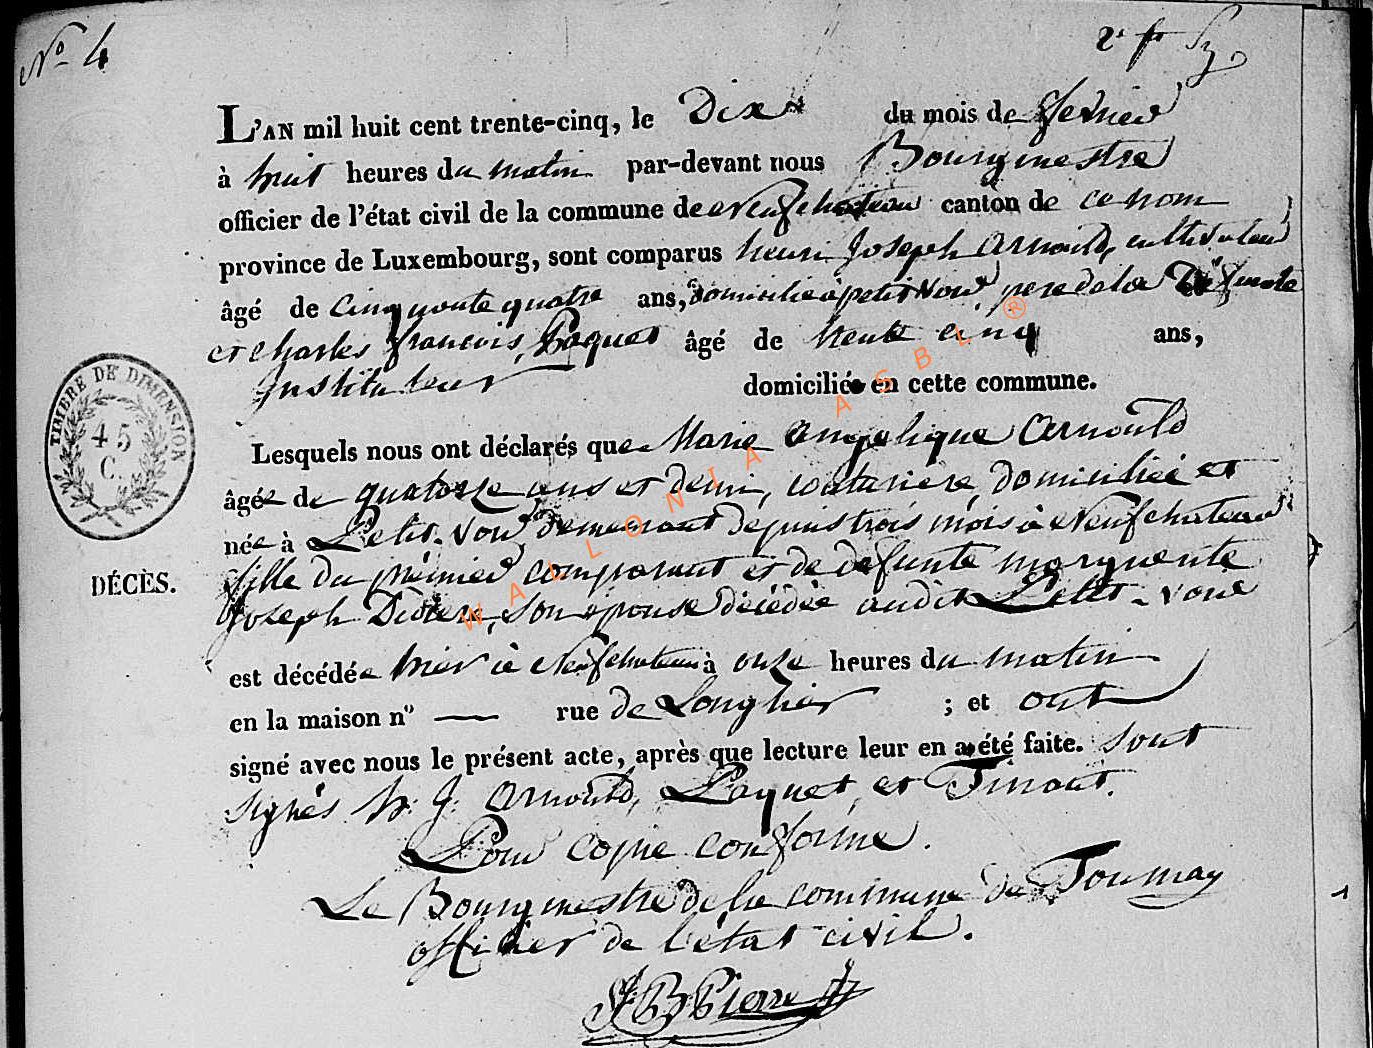 N° 4
L'AN mil huit cent trente-cinq, le Dix du mois de fevrier
à huit heures du matin par-devant nous Bourgmestre
officier de l'état civil de la commune de Neufchateau canton de ce nom
province de Luxembourg, sont comparus henri Joseph Arnould, cultivateur
âgé de cinquante quatre ans, domicilié à petit voir, pere de la Défunte
et charles françois Paquet âgé de trente cinq ans,
instituteur domiciliés en cette commune.
Lesquels nous ont déclarés que Marie angelique Arnould
âgée de quatorze ans et demi, couturière, domiciliée et
née à Petit-voir demeurant depuis trois mois à Neufchateau
fille du prémier comparant et de defunte marguerite
Joseph Didier, son épouse décédée audit Petit-voir
est décédée hier à Neufchateau à onze heures du matin
en la maison n° — rue de Longlier ; et ont
signé avec nous le présent acte, après que lecture leur en a été faite. sont
signés h. J. Arnould, Paquet, et Tinant.
Pour copie conforme.
Le Bourgmestre de la commune de Tournay
officier de l'état civil.
J B Pierre
TIMBRE DE DIMENSION
45
C.
DÉCÈS.
WALLONIA ASBL ®